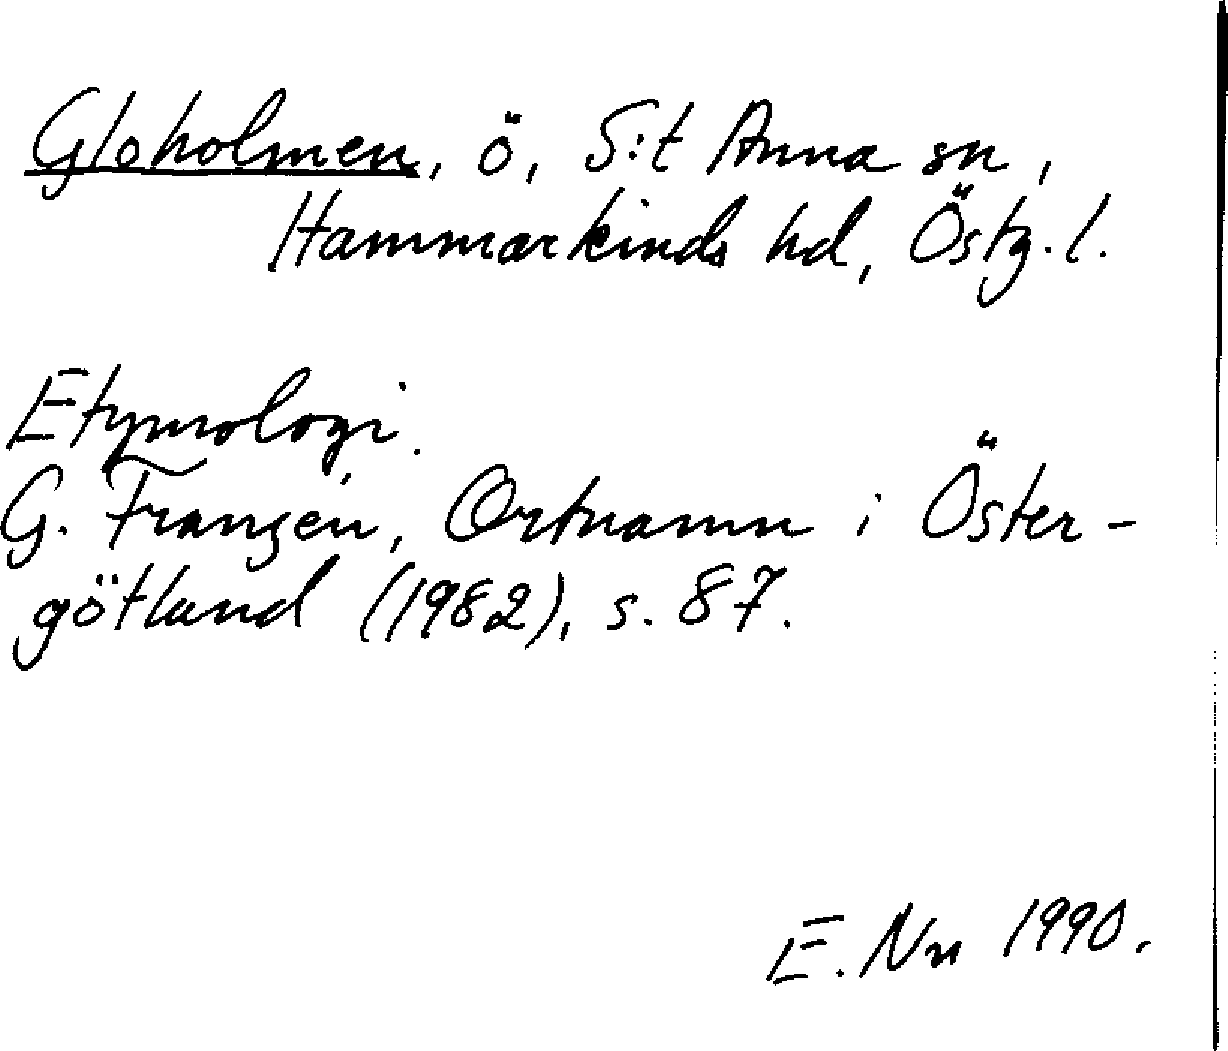 Gloholmen, ö, S:t Anna sn,
Hammarkinds hd, Östg. l.
Etymologi.
G. Franzén, Ortnamn i Öster-
götland (1982), s. 87.
E. Nn 1990.